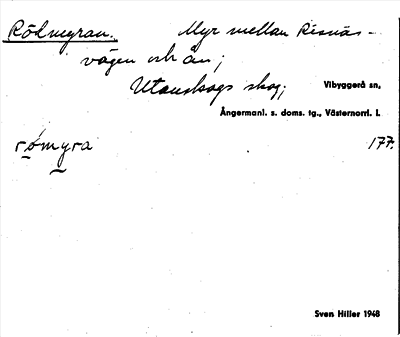 Rödmyran. Myr mellan Risnäs-
vägen och ån;
Utanskogs skog; Vibyggerå sn,
Ångermanl. s. doms. tg., Västernorrl. l.
römyra 177.
Sven Hiller 1948